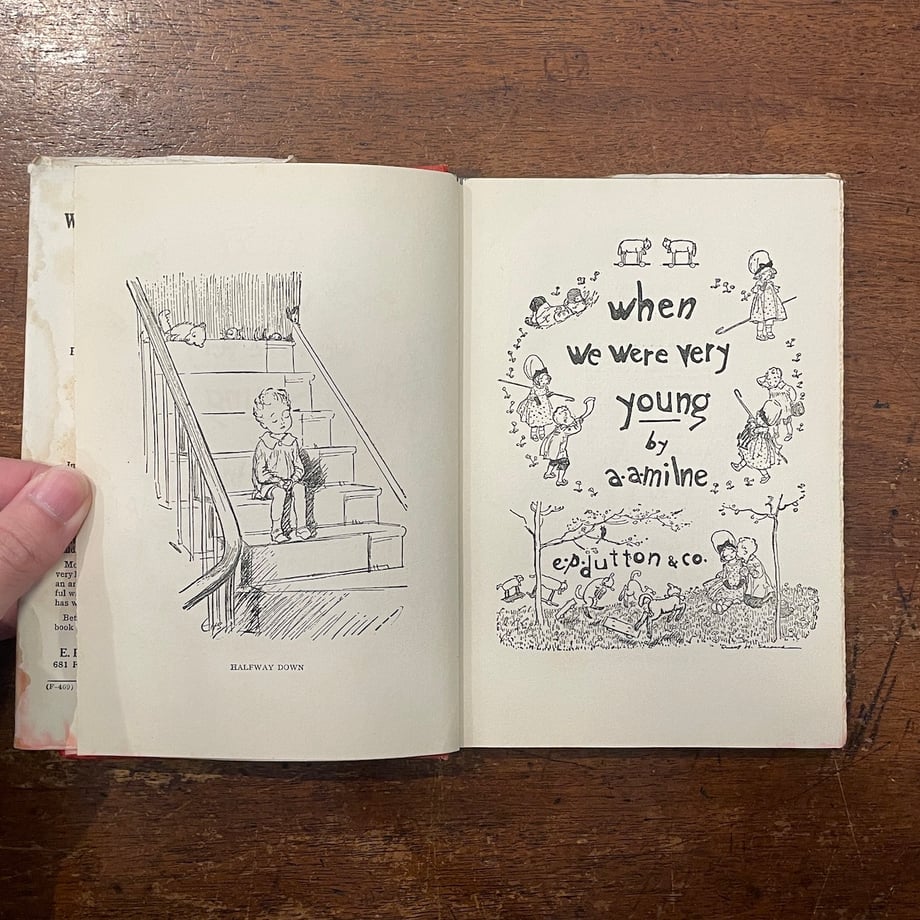 W
E.
681 F
(F-469)
Mo
very l
an ar
ful w
has w
Bef
book
HALFWAY DOWN
when
we were very
young
by
a.a milne
e.p. dutton & co.